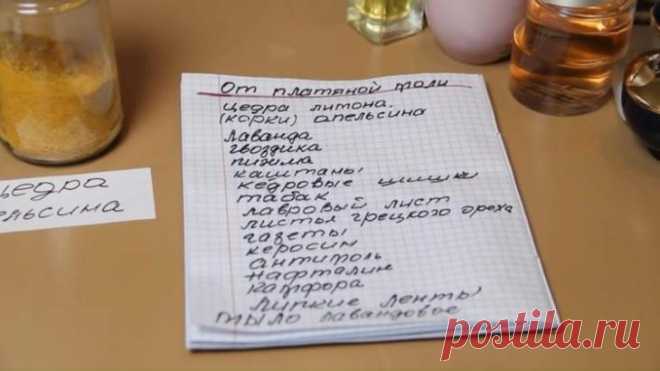 От платяной моли
цедра лимона.
(корки) апельсина
лаванда
гвоздика
пижма
каштаны
кедровые шишки
табак
лавровый лист
листья грецкого ореха
газеты
керосин
антимоль
нафталин
камфора
липкие ленты
мыло лавандовое
цедра
апельсина
postila.ru